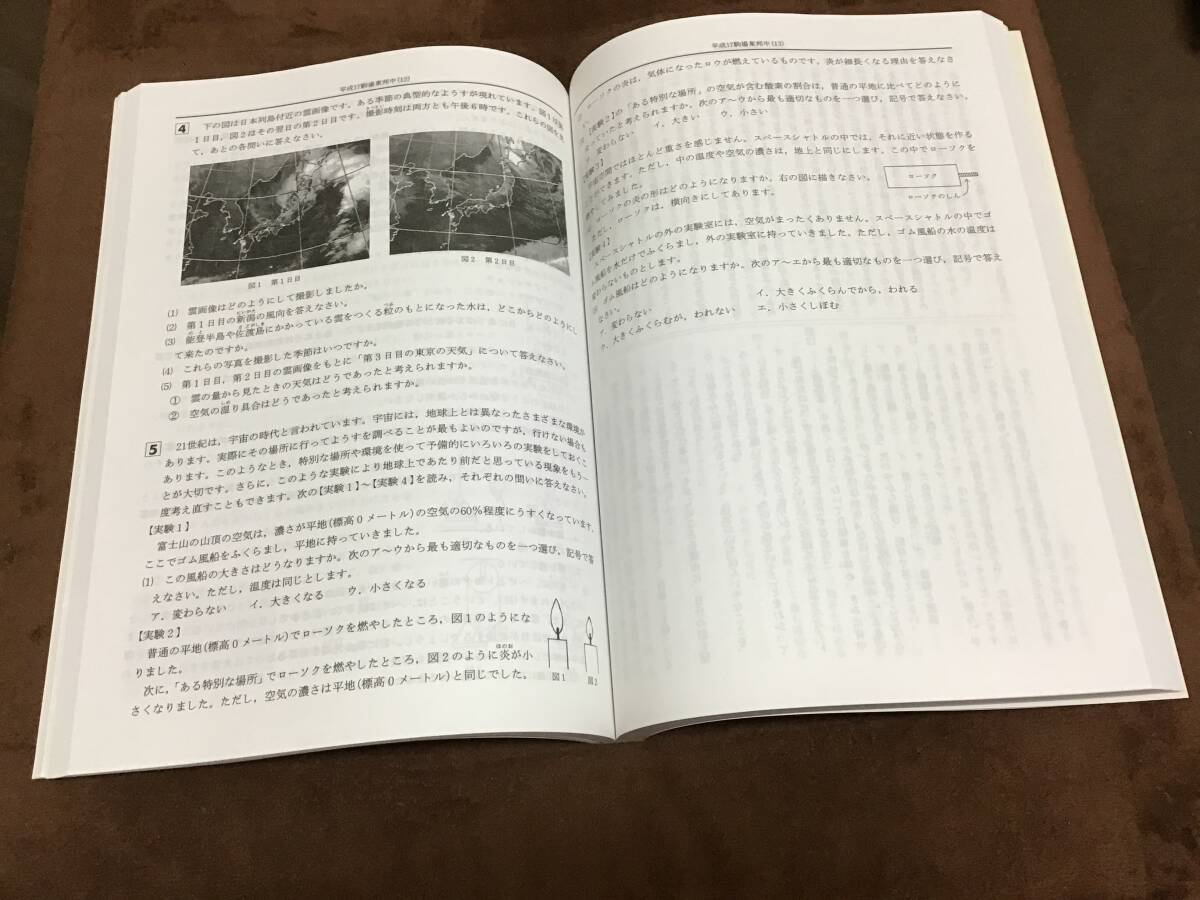 平成17駒場東邦中(12)
4 下の図は日本列島付近の雲画像です。ある季節の典型的なようすが現れています。図1は第
1日目，図2はその翌日の第2日目です。撮影時刻は両方とも午後6時です。これらの図を見
て，あとの各問いに答えなさい。
図1 第1日目
図2 第2日目
(1) 雲画像はどのようにして撮影しましたか。
(2) 第1日目の新潟の風向を答えなさい。
(3) 能登半島や佐渡島にかかっている雲をつくる粒のもとになった水は，どこからどのようにし
て来たのですか。
(4) これらの写真を撮影した季節はいつですか。
(5) 第1日目，第2日目の雲画像をもとに「第3日目の東京の天気」について答えなさい。
① 雲の量から見たときの天気はどうであったと考えられますか。
② 空気の湿り具合はどうであったと考えられますか。
5 21世紀は，宇宙の時代と言われています。宇宙には，地球上とは異なったさまざまな環境が
あります。実際にその場所に行ってようすを調べることが最もよいのですが，行けない場合も
あります。このようなとき，特別な場所や環境を使って予備的にいろいろの実験をしておくこ
とが大切です。さらに，このような実験により地球上であたり前だと思っている現象をもう一
度考え直すこともできます。次の【実験1】〜【実験4】を読み，それぞれの問いに答えなさい。
【実験1】
富士山の山頂の空気は，濃さが平地(標高0メートル)の空気の60％程度にうすくなっています。
ここでゴム風船をふくらまし，平地に持っていきました。
(1) この風船の大きさはどうなりますか。次のア〜ウから最も適切なものを一つ選び，記号で答
えなさい。ただし，温度は同じとします。
ア．変わらない イ．大きくなる ウ．小さくなる
【実験2】
普通の平地(標高0メートル)でローソクを燃やしたところ，図1のようにな
りました。
次に，「ある特別な場所」でローソクを燃やしたところ，図2のように炎が小
さくなりました。ただし，空気の濃さは平地(標高0メートル)と同じでした。
図1
図2
平成17駒場東邦中(13)
ローソクの炎は，気体になったロウが燃えているものです。炎が細長くなる理由を答えなさ
【実験2】の「ある特別な場所」の空気が含む酸素の割合は，普通の平地に比べてどのように
っていたと考えられますか。次のア〜ウから最も適切なものを一つ選び，記号で答えなさい。
変わらない イ．大きい ウ．小さい
宇宙空間ではほとんど重さを感じません。スペースシャトルの中では，それに近い状態を作る
ができます。ただし，中の温度や空気の濃さは，地上と同じにします。この中でローソクを
てみました。
ローソクの炎の形はどのようになりますか。右の図に描きなさい。
ただし，ローソクは，横向きにしてあります。
ローソク
ローソクのしん
スペースシャトルの外の実験室には，空気がまったくありません。スペースシャトルの中でゴ
ム風船を水だけでふくらまし，外の実験室に持っていきました。ただし，ゴム風船の水の温度は
変わらないものとします。
ゴム風船はどのようになりますか。次のア〜エから最も適切なものを一つ選び，記号で答え
なさい。
ア．変わらない イ．大きくふくらんでから，われる
ウ．大きくふくらむが，われない エ．小さくしぼむ